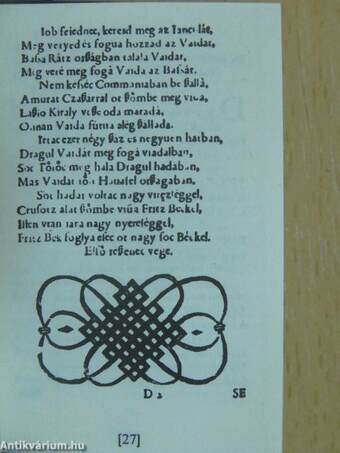 Iob feiednec, keresd meg az Iancuſát,
Meg veryed és fogua hozzad az Vaidat,
Baſsa Rátz orſzagban talala Vaidat,
Meg veré meg fogá Vaida az Baſsát.
Nem keſséc Commaniaban be ſzalla,
Amurat Czaſzarral ot ſzömbe meg viua,
Laſzlo Kiraly vеſzſe oda marada,
Oſman Vaida futua alég ſzallada.
Irtac ezer négy ſzaz es negyuen hatban,
Dragul Vaidát meg fogá viadalban,
Soc Töröc meg hala Dragul hadaban,
Mas Vaidat tön Hauaſel orſzagaban.
Soc hadat voltac nagy vitezſéggel,
Cruſotz alat ſzömbe viua Fritz Beckel,
Iſten vtan iara nagy nyereſéggel,
Fritz Bek foglya eſec ot nagy ſoc Béckel.
Elſö reſzenec vege.
D 2 SE
[27]
Antikvárium.hu